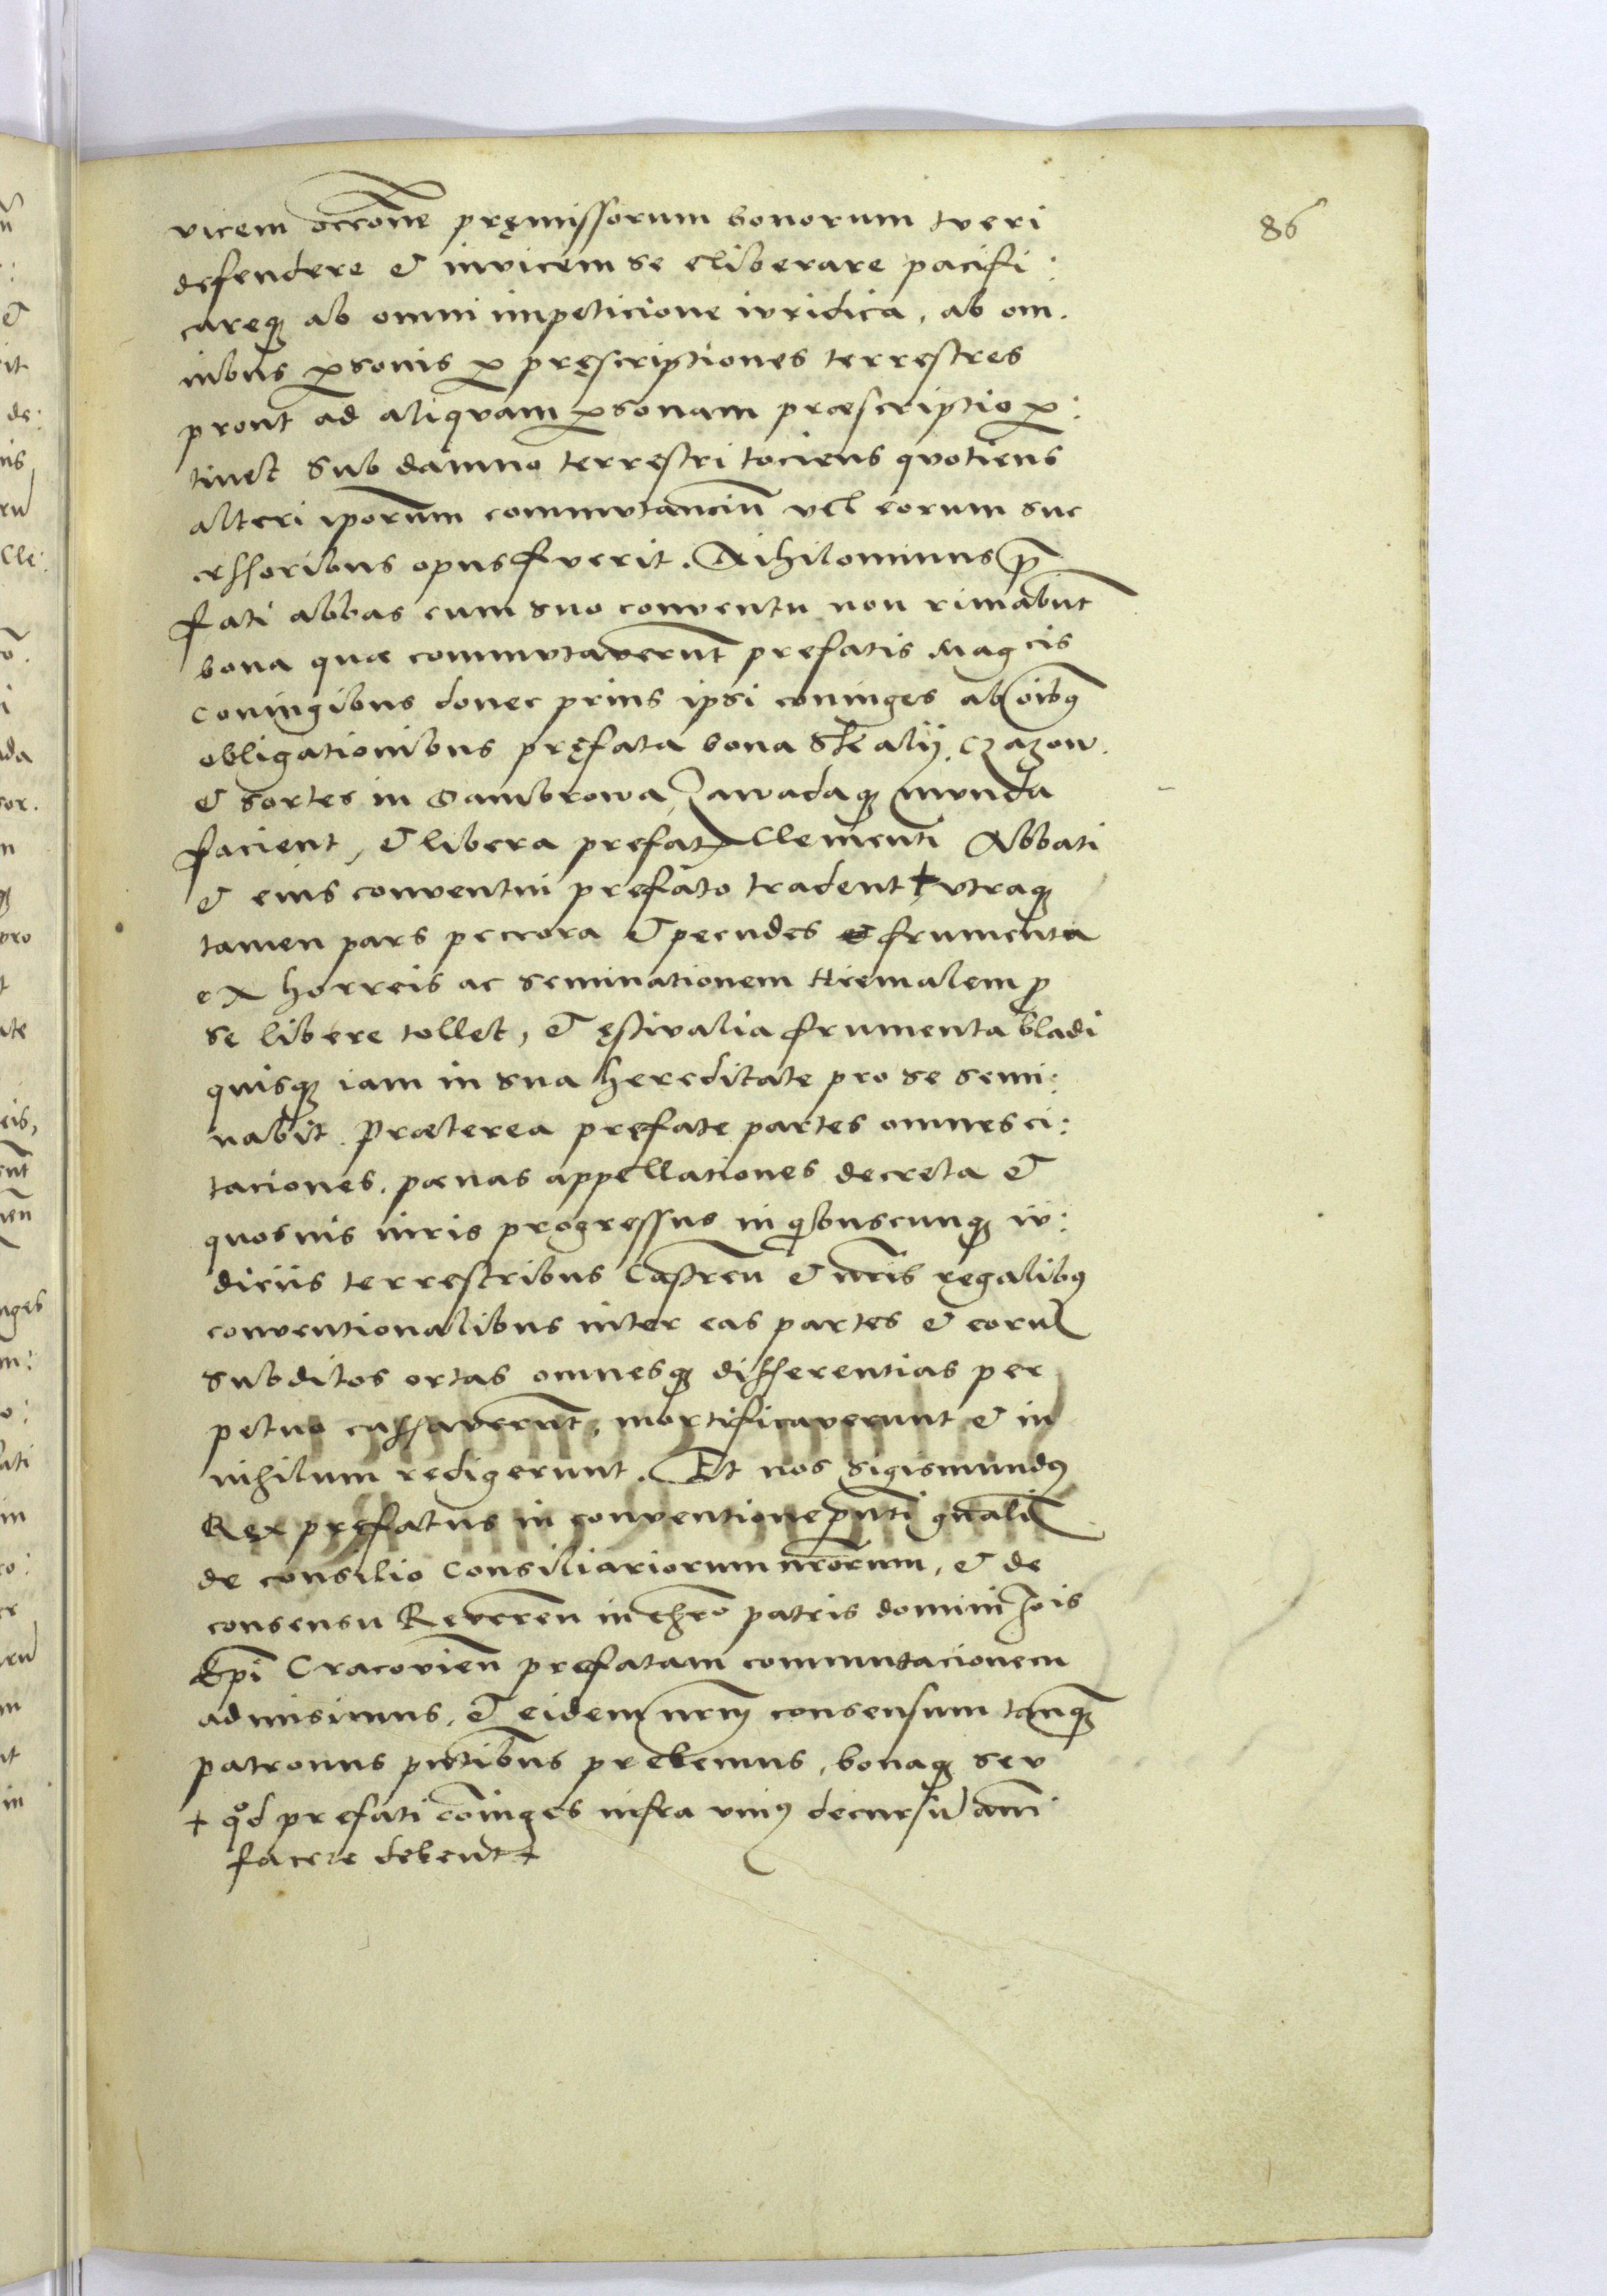 86
vicem occõne pręmissorum bonorum tveri
defendere & invicem se eliberare pacifi:
careq3 ab omni impeticione ivridica, ab om.
nibus ꝑsonis ꝑ pręscriptiones terrestres
prout ad aliqvam ꝑsonam præscriptio ꝑ:
tinet sub damno terrestri tociens qvotiens
alteri ip̃orum commvtanciũ vel eorum suc
cessoribus opus fverit. Nihilominus p̃
fati abbas cum suo conventu non rimabũt
bona quæ commvtaverũt prefatis Magcis
coniugibus donec prius ipsi coniuges ab oĩbꝯ
obligationibus pręfata bona Skalÿ, Czazow.
& sortes in Dambrowa, Zawadaq3 mvnda
facient, & libera prefat Clementi Abbati
& eius conventui prefato tradent + vtraq3
tamen pars peccora & pecudes & frumenta
ex horreis ac seminationem Hiemalem ꝓ
se libere tollet, & ęstivalia frumenta bladi
quisq3 iam in sua hereditate pro se semi:
nabit. Præterea pręfate partes omnes ci:
taciones, pœnas appellationes decreta &
quosuis iuris progressus in qͥbuscunq3 iv:
diciis terrestribus Castreñ & nr̃is regalibꝯ
conventionalibus inter eas partes & eorum
subditos ortas omnesq3 differentias per
petuo cassaverũt, mortificaverunt & in
nihilum redigerunt. Et nos Sigismundꝯ
Rex pręfatus in conventione p̃nti gñali
de consilio Consiliariorum nr̃orum, & de
consensu Revereñ in Chr̃o patris domini Jois
Epĩ Cracovieñ prefatam commutacionem
admisimus, & eidem nr̃m consensum tanq3
patronus pñtibus prebemus, bonaq3 sev
+ qͦd prefati cõiuges infra vniꝯ decursũ anni
facere debent +